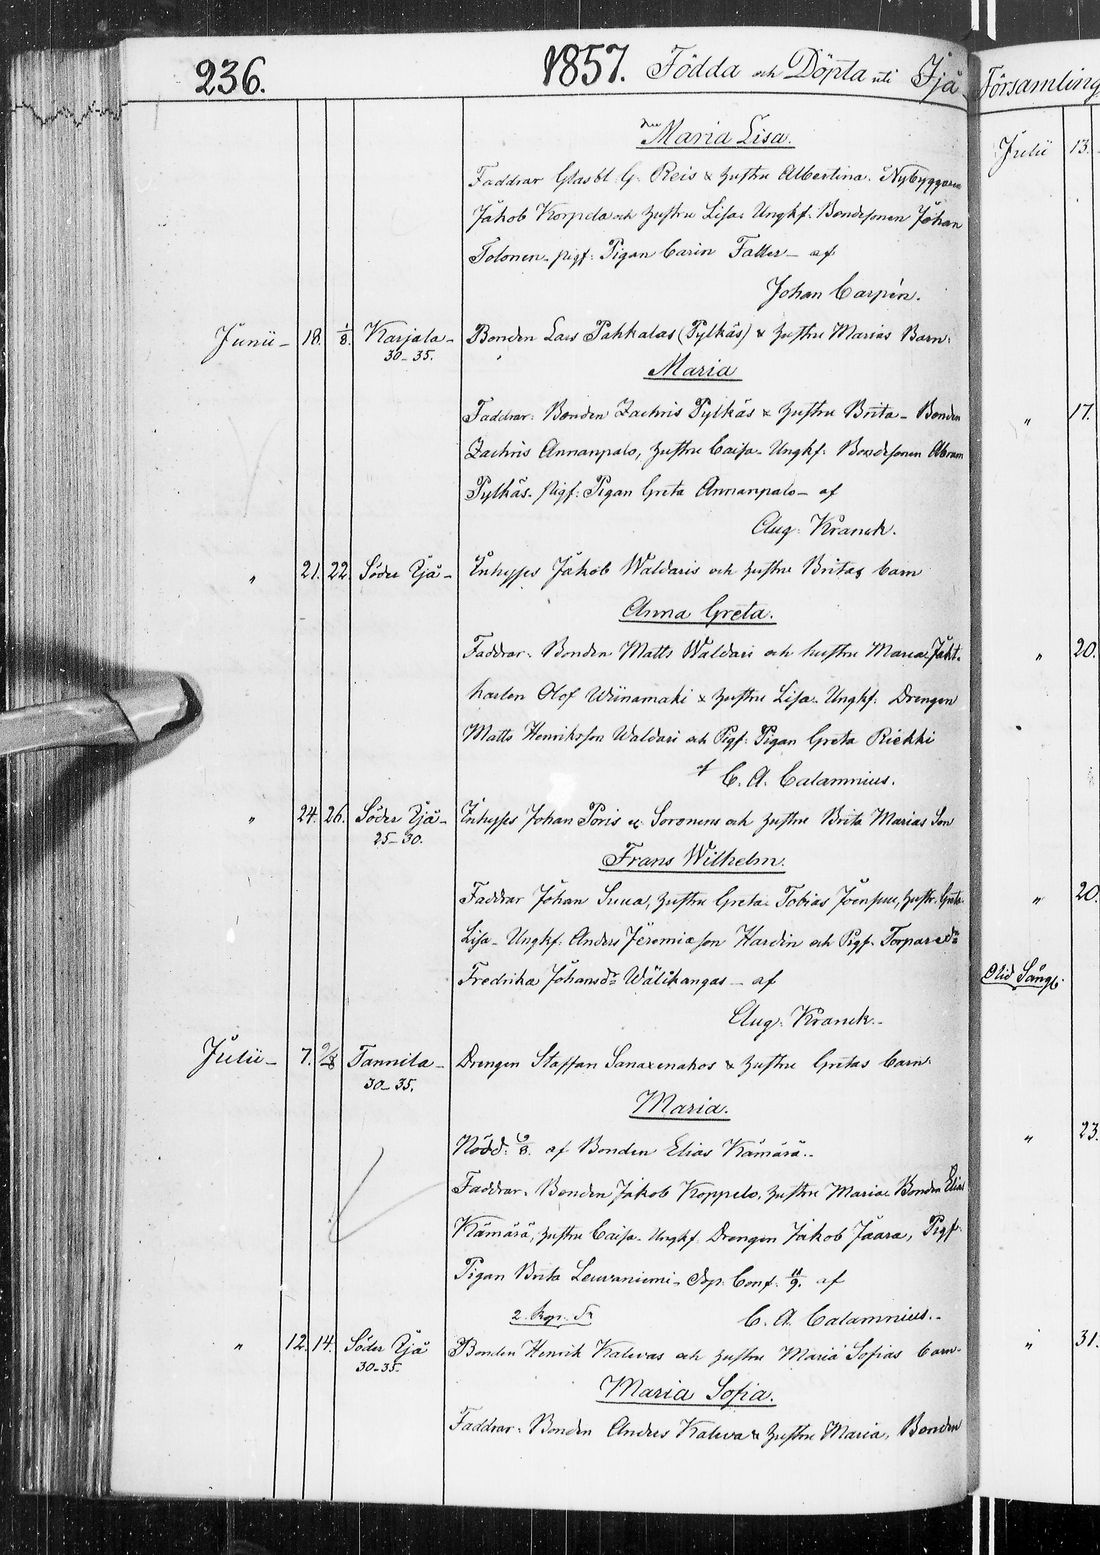 236.
1857. Födda och Döpta uti Ijå
Maria Lisa.
Faddrar Glasbl. G. Reis & hustru Albertina. Nybyggaren
Jakob Korpela och hustru Lisa. Ungkf. Bondesonen Johan
Tolonen. pigf: Pigan Carin Falter – af
Johan Carpén.
Junii – 18. 1/8. Karjala – Bonden Lars Pakkalas (Pylkäs) & hustru Marias Barn.
30–35.
Maria
Faddrar: Bonden Zachris Pylkäs & hustru Brita – Bonden
Zachris Annanpalo, hustru Caisa. Ungkf. Bondesonen Abram
Pylkäs. pigf: Pigan Greta Annanpalo – af
Aug. Kranck.
" 21. 22. Söder Ijå – Inhyses Jakob Waldaris och hustru Britas barn
Anna Greta.
Faddrar. Bonden Matts Waldari och hustru Maria, Jakt-
karlen Olof Wiinamaki & hustru Lisa. Ungkf. Drengen
Matts Henriksson Waldari och Pigf. Pigan Greta Riekki
af C. A. Calamnius.
" 24. 26. Söder Ijå – Inhyses Johan Poris Soronens och hustru Brita Marias Son
25–30.
Frans Wilhelm.
Faddrar Johan Suua, hustru Greta. Tobias Joensuu, hustr. Greta
Lisa – Ungkf. Anders Jeremiæson Hardin och Pigf. Torparedr
Fredrika Johansdr Wälikangas – af
Aug. Kranck. –
Julii – 7. 9/8 Tannila – Drengen Staffan Sanaxenahos & hustru Gretas barn.
30–35.
Maria.
Nödd. 9/8. af Bonden Elias Kämärä. –
Faddrar. Bonden Jakob Koppelo, hustru Maria. Bonden Elias
Kämärä, hustru Caisa. Ungkf. Drengen Jakob Jaara, Pigf.
Pigan Brita Leuvaniemi – Dop. Conf. 11/9. af
C. A. Calamnius. –
" 12. 14. Söder Ijå Bonden Henrik Kalevas och hustru Maria Sofias barn –
30–35.
Maria Sofia.
Faddrar. Bonden Anders Kaleva & hustru Maria, Bonden
Församling
Julii 13.
" 17.
" 20.
" 20.
" 23.
" 31.